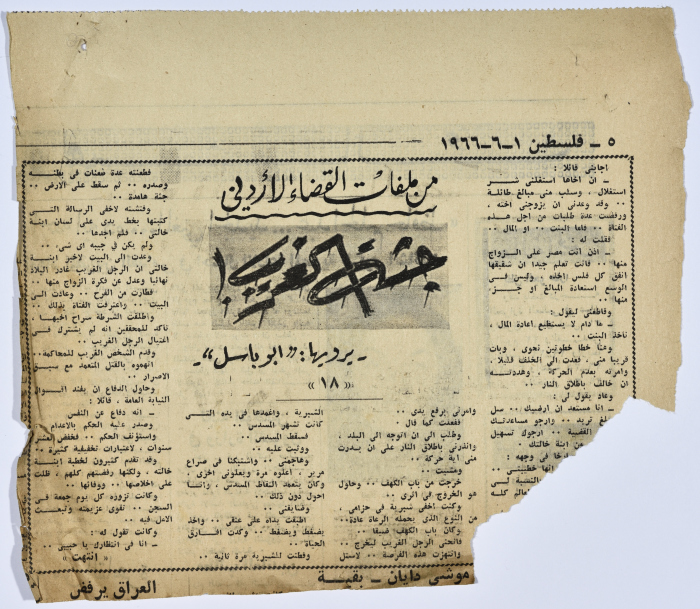 ٥ ـ فلسطين ١-٦-١٩٦٦
من ملفات القضاء الأردني
جثة الغريب!
ـ يرويها: "ابو باسل" ـ
« ١٨ »
اجابني قائلا :
ـ ان اخاها استغلني شر
استغلال ، وسلب مني مبالغ طائلة
٠٠ وقد وعدني ان يزوجني اخته ،
ورفضت عدة طلبات من اجل هذه
الفتاة ٠٠ فاما البنت ٠٠ او المال ٠٠
فقلت له :
ـ اذن انت مصر على الزواج
منها ٠٠ فانت تعلم جيدا ان شقيقها
انفق كل فلس اخذه ، وليس في
الوسع استعادة المبالغ او جزء
منها ٠٠
وقاطعني ليقول :
ـ ما دام لا يستطيع اعادة المال ،
ناخذ البنت ٠٠
وهنا خطا خطوتين نحوي ، وبات
قريبا مني ، فعدت الى الخلف قليلا ،
وامرته بعدم الحركة ، وهددته
ان خالف باطلاق النار ٠٠
وعاد يقول لي :
ـ انا مستعد ان ارضيك ٠٠ سل
تريد ٠٠ وارجو مساعدتك
القضية ٠٠ ارجوك تسهيل
ابنة خالتك
في وجهه :
انها خطيبتي ٠٠
كله
وامرني برفع يدي ٠٠
ففعلت كما قال
وطلب الي ان اتوجه الى البلد ،
وانذرني باطلاق النار على ان بدرت
مني اية حركة ٠٠
ومشيت ٠٠
خرجت من باب الكهف ٠٠ وحاول
هو الخروج في اثري ٠٠
وكنت اخفي شبرية في حزامي ،
من النوع الذي يحمله الرعاة عادة٠٠
وكان باب الكهف ضيقا ٠٠
فانحنى الرجل الغريب ليخرج ٠٠
وانتهزت هذه الفرصة ٠٠ لاستل
الشبرية ، واغمدها في يده التي
كانت تشهر المسدس ٠٠
فسقط المسدس ٠٠
ووثبت عليه ٠٠
وهاجمني ٠٠ واشتبكنا في صراع
مرير ، اعلوه مرة ويعلوني اخرى ،
وكان يتعمد التقاط المسدس ، وانا
احول دون ذلك ٠٠
وضايقني ٠٠
اطبقت يداه على عنقي ٠٠ واخذ
يضغط ويضغط ٠٠ وكدت افارق
الحياة ٠٠
وفطنت للشبرية مرة ثانية ٠٠
فطعنته عدة طعنات في بطنه
وصدره ٠٠ ثم سقط على الارض ٠٠
جثة هامدة ٠٠
وفتشته لاخفي الرسالة التي
كتبتها بخط يدي على لسان ابنة
خالتي ٠٠ فلم اجدها ٠٠
ولم يكن في جيبه اي شيء ٠٠
وعدت الى البيت لاخبر ابنة
خالتي ان الرجل الغريب غادر البلاد
نهائيا وعدل عن فكرة الزواج منها ٠٠
فطارت من الفرح ٠٠ وعادت الى
البيت ٠٠ واعترفت الفتاة بذلك ٠٠
واطلقت الشرطة سراح اخيها ٠٠
تاكد للمحققين انه لم يشترك في
اغتيال الرجل الغريب ٠٠
وقدم الشخص القريب للمحاكمة٠٠
اتهموه بالقتل المتعمد مع سبق
الاصرار ٠٠
وحاول الدفاع ان يفند اقوال
النيابة العامة ، قائلا :
ـ انه دفاع عن النفس
وصدر عليه الحكم بالاعدام
واستؤنف الحكم ٠٠ فخفض
سنوات ، لاعتبارات تخفيفية كثيرة ٠٠
وقد تقدم كثيرون لخطبة ابنة
خالته ، ولكنها رفضتهم كلهم ، ظلت
على اخلاصها ٠٠ ووفائها ٠٠
وكانت تزوره كل يوم جمعة في
السجن ٠٠ تقوي عزيمته وتبعث
الامل فيه ٠٠
وكانت تقول له :
ـ انا في انتظارك يا حبيبي ٠٠
« انتهت »
موشي دايان ـ بقية
العراق يرفض